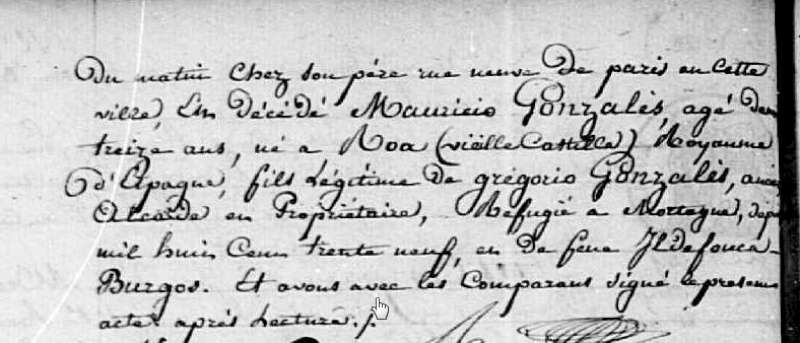 Du matin chez son père rue neuve De paris en cette
ville, Est Décédé Mauricio Gonzalès, agé De
treize ans, né a Roa (vieille Castille) Royaume
d'Espagne, fils Légitime De grégorio Gonzalès, ancien
Alcaide et Propriétaire, Réfugié a Mortagne, depuis
mil huit Cent trente neuf, et De feue Ildefonca
Burgos. Et avons avec les Comparans signé le present
acte après Lecture./.